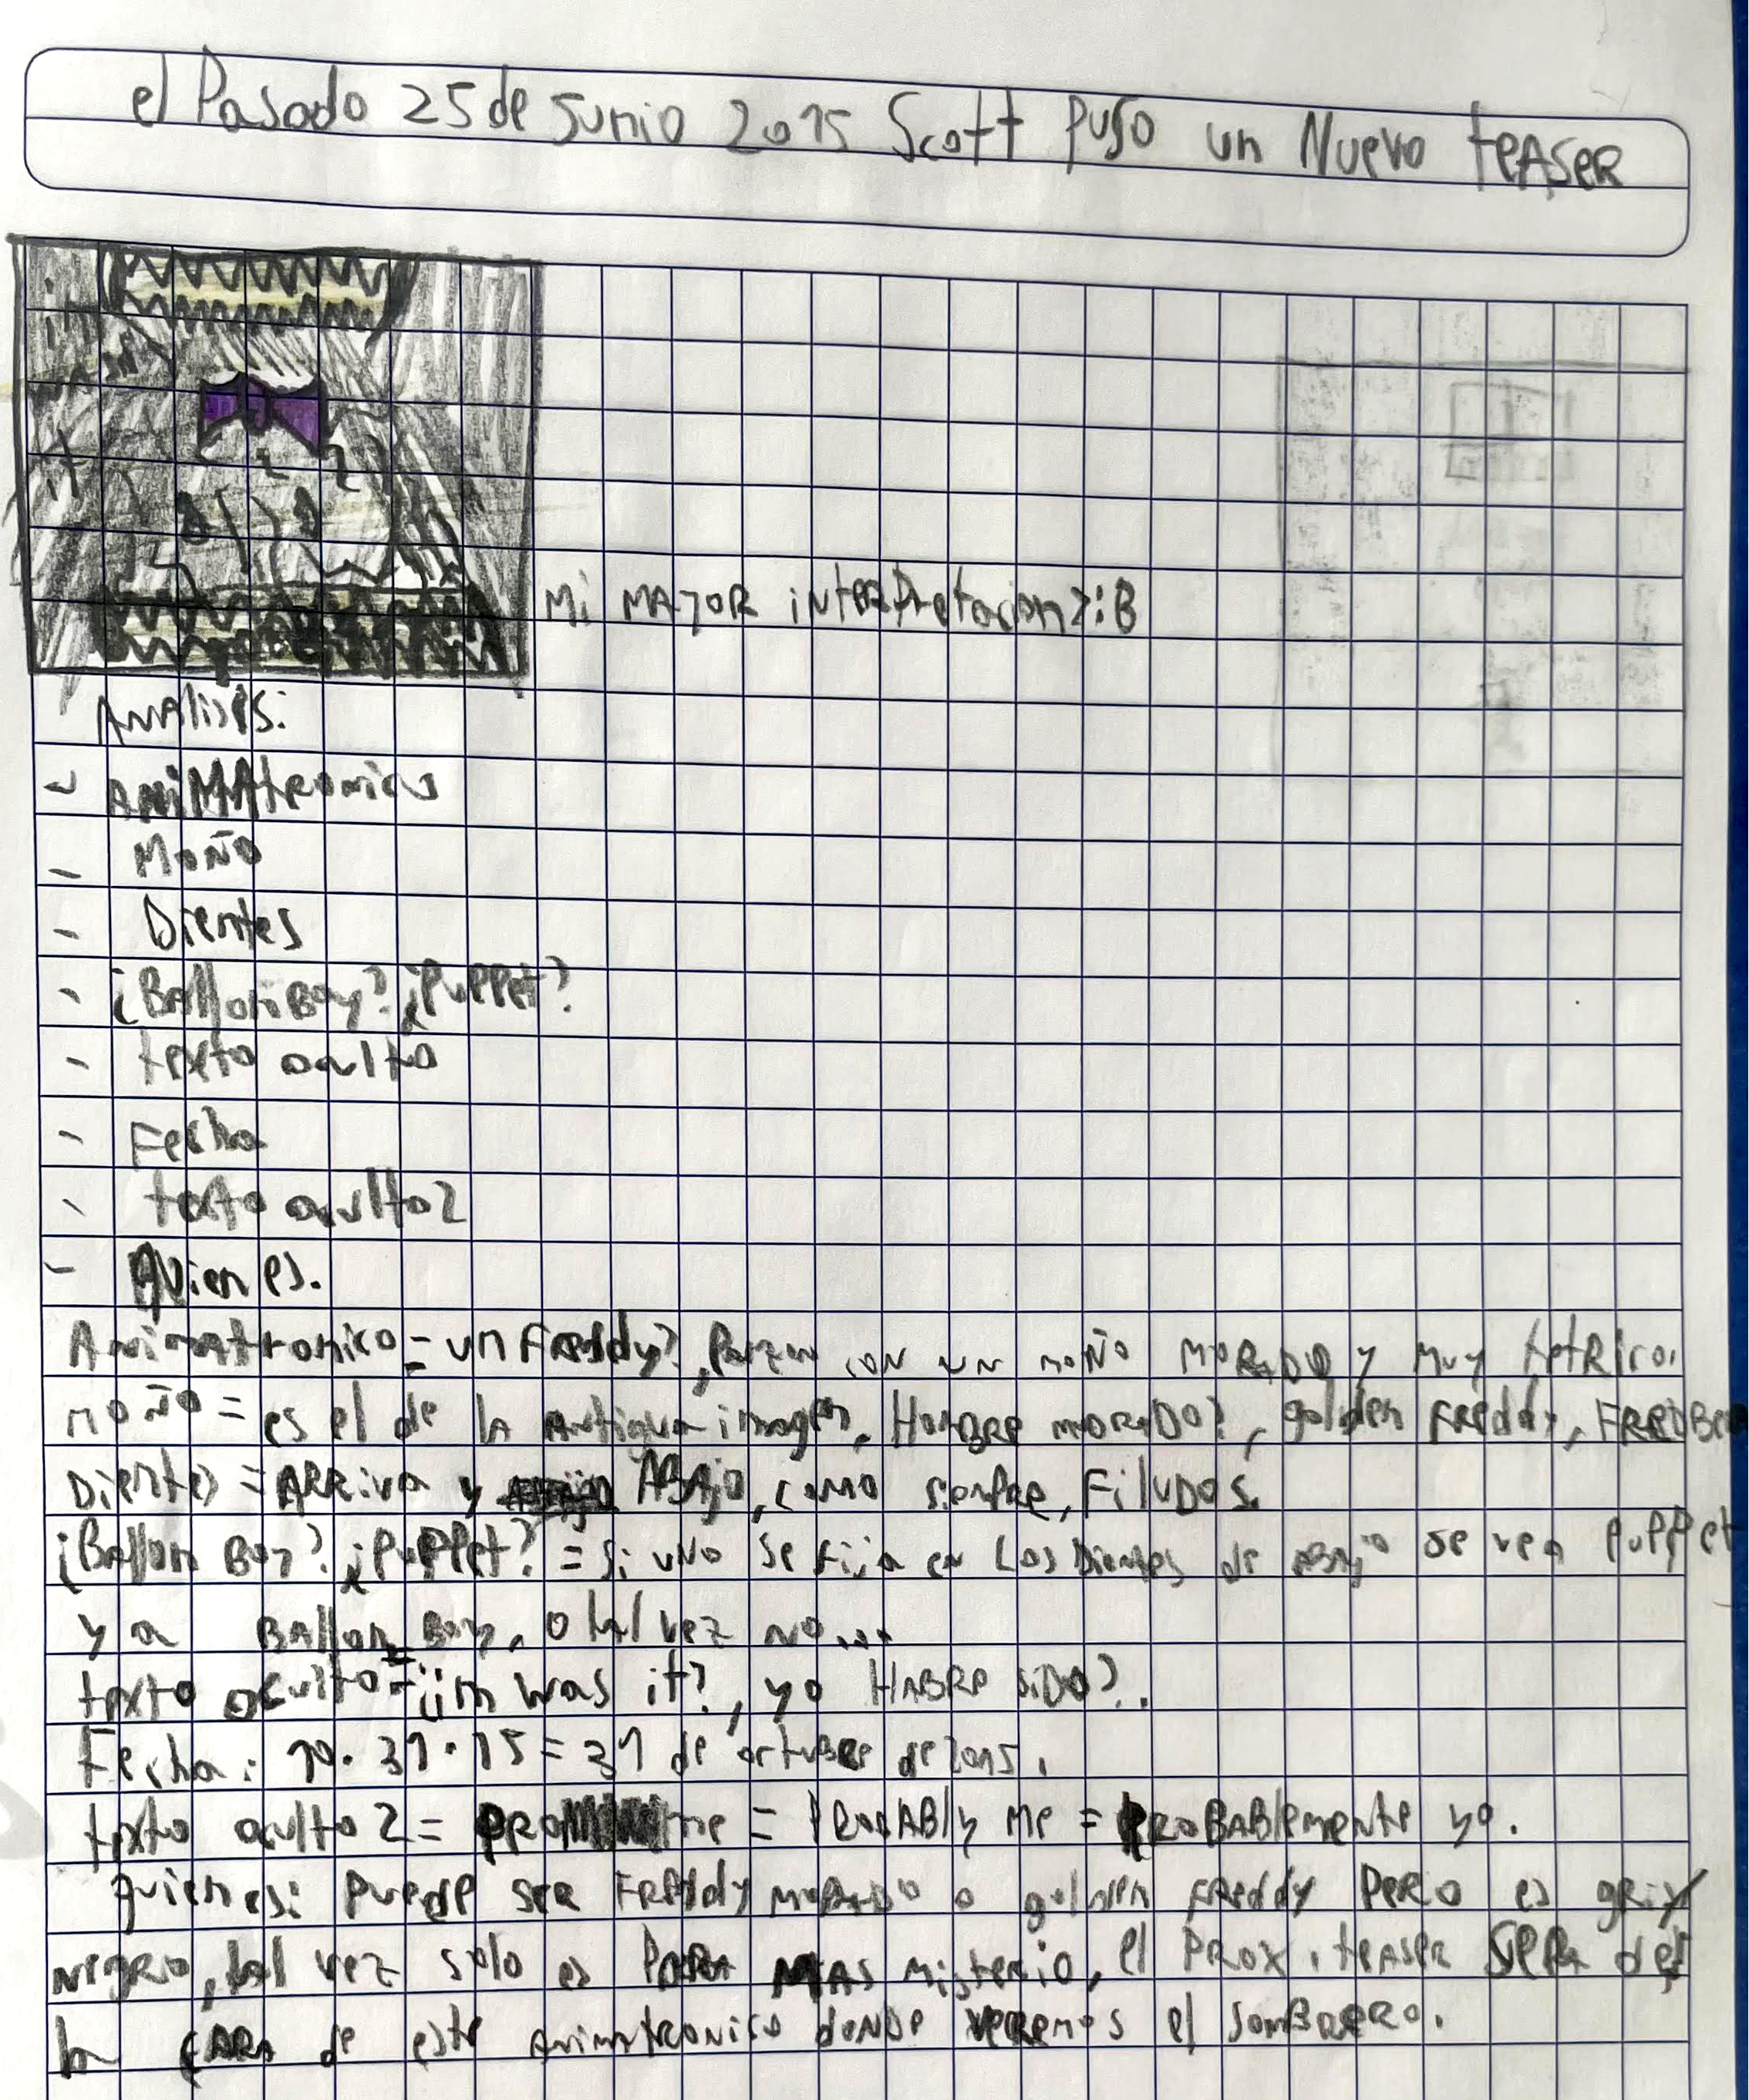 el Pasado 25 de Junio 2015 Scott puso un Nuevo teASeR
im
was
it
Mi MAJOR iNteRPretacion >:B
Analisis:
- ANiMAtRonico
- Moño
- Dientes
- ¿BAllonBoy? ¿PuPPet?
- texto oculto
- Fecha
- texto oculto 2
- Quien es.
Animatronico = un Freddy?, con un moño MoRADO y Muy tetRico.
moño = es el de la Antigua imagen, HomBRe moRADO?, golden FReddy, FREDBe
Dientes = ARRiva y ABAjo, como siempre, FiluDos.
¿BAllon Boy? ¿PuPPet? = Si uNo Se fija en Los Dientes de ABAjo se ve a PuPPet
y a BAllon Boy, o tal vez no...
texto oculto = ¿im was it?, yo HABRe siDo?.
Fecha: 10.31.15 = 31 de octuBRe de 2015.
texto oculto 2 = PRo me = PRobABly Me = PRoBABlemente yo.
quien es: Puede seR FReddy moRADo o golden FReddy PeRo es gris y
negRo, tal vez solo es PaRa MAS misterio, el PRox. teAseR SeRa de
la CARA de este AnimatRonico donde veRemos el SomBReRo.